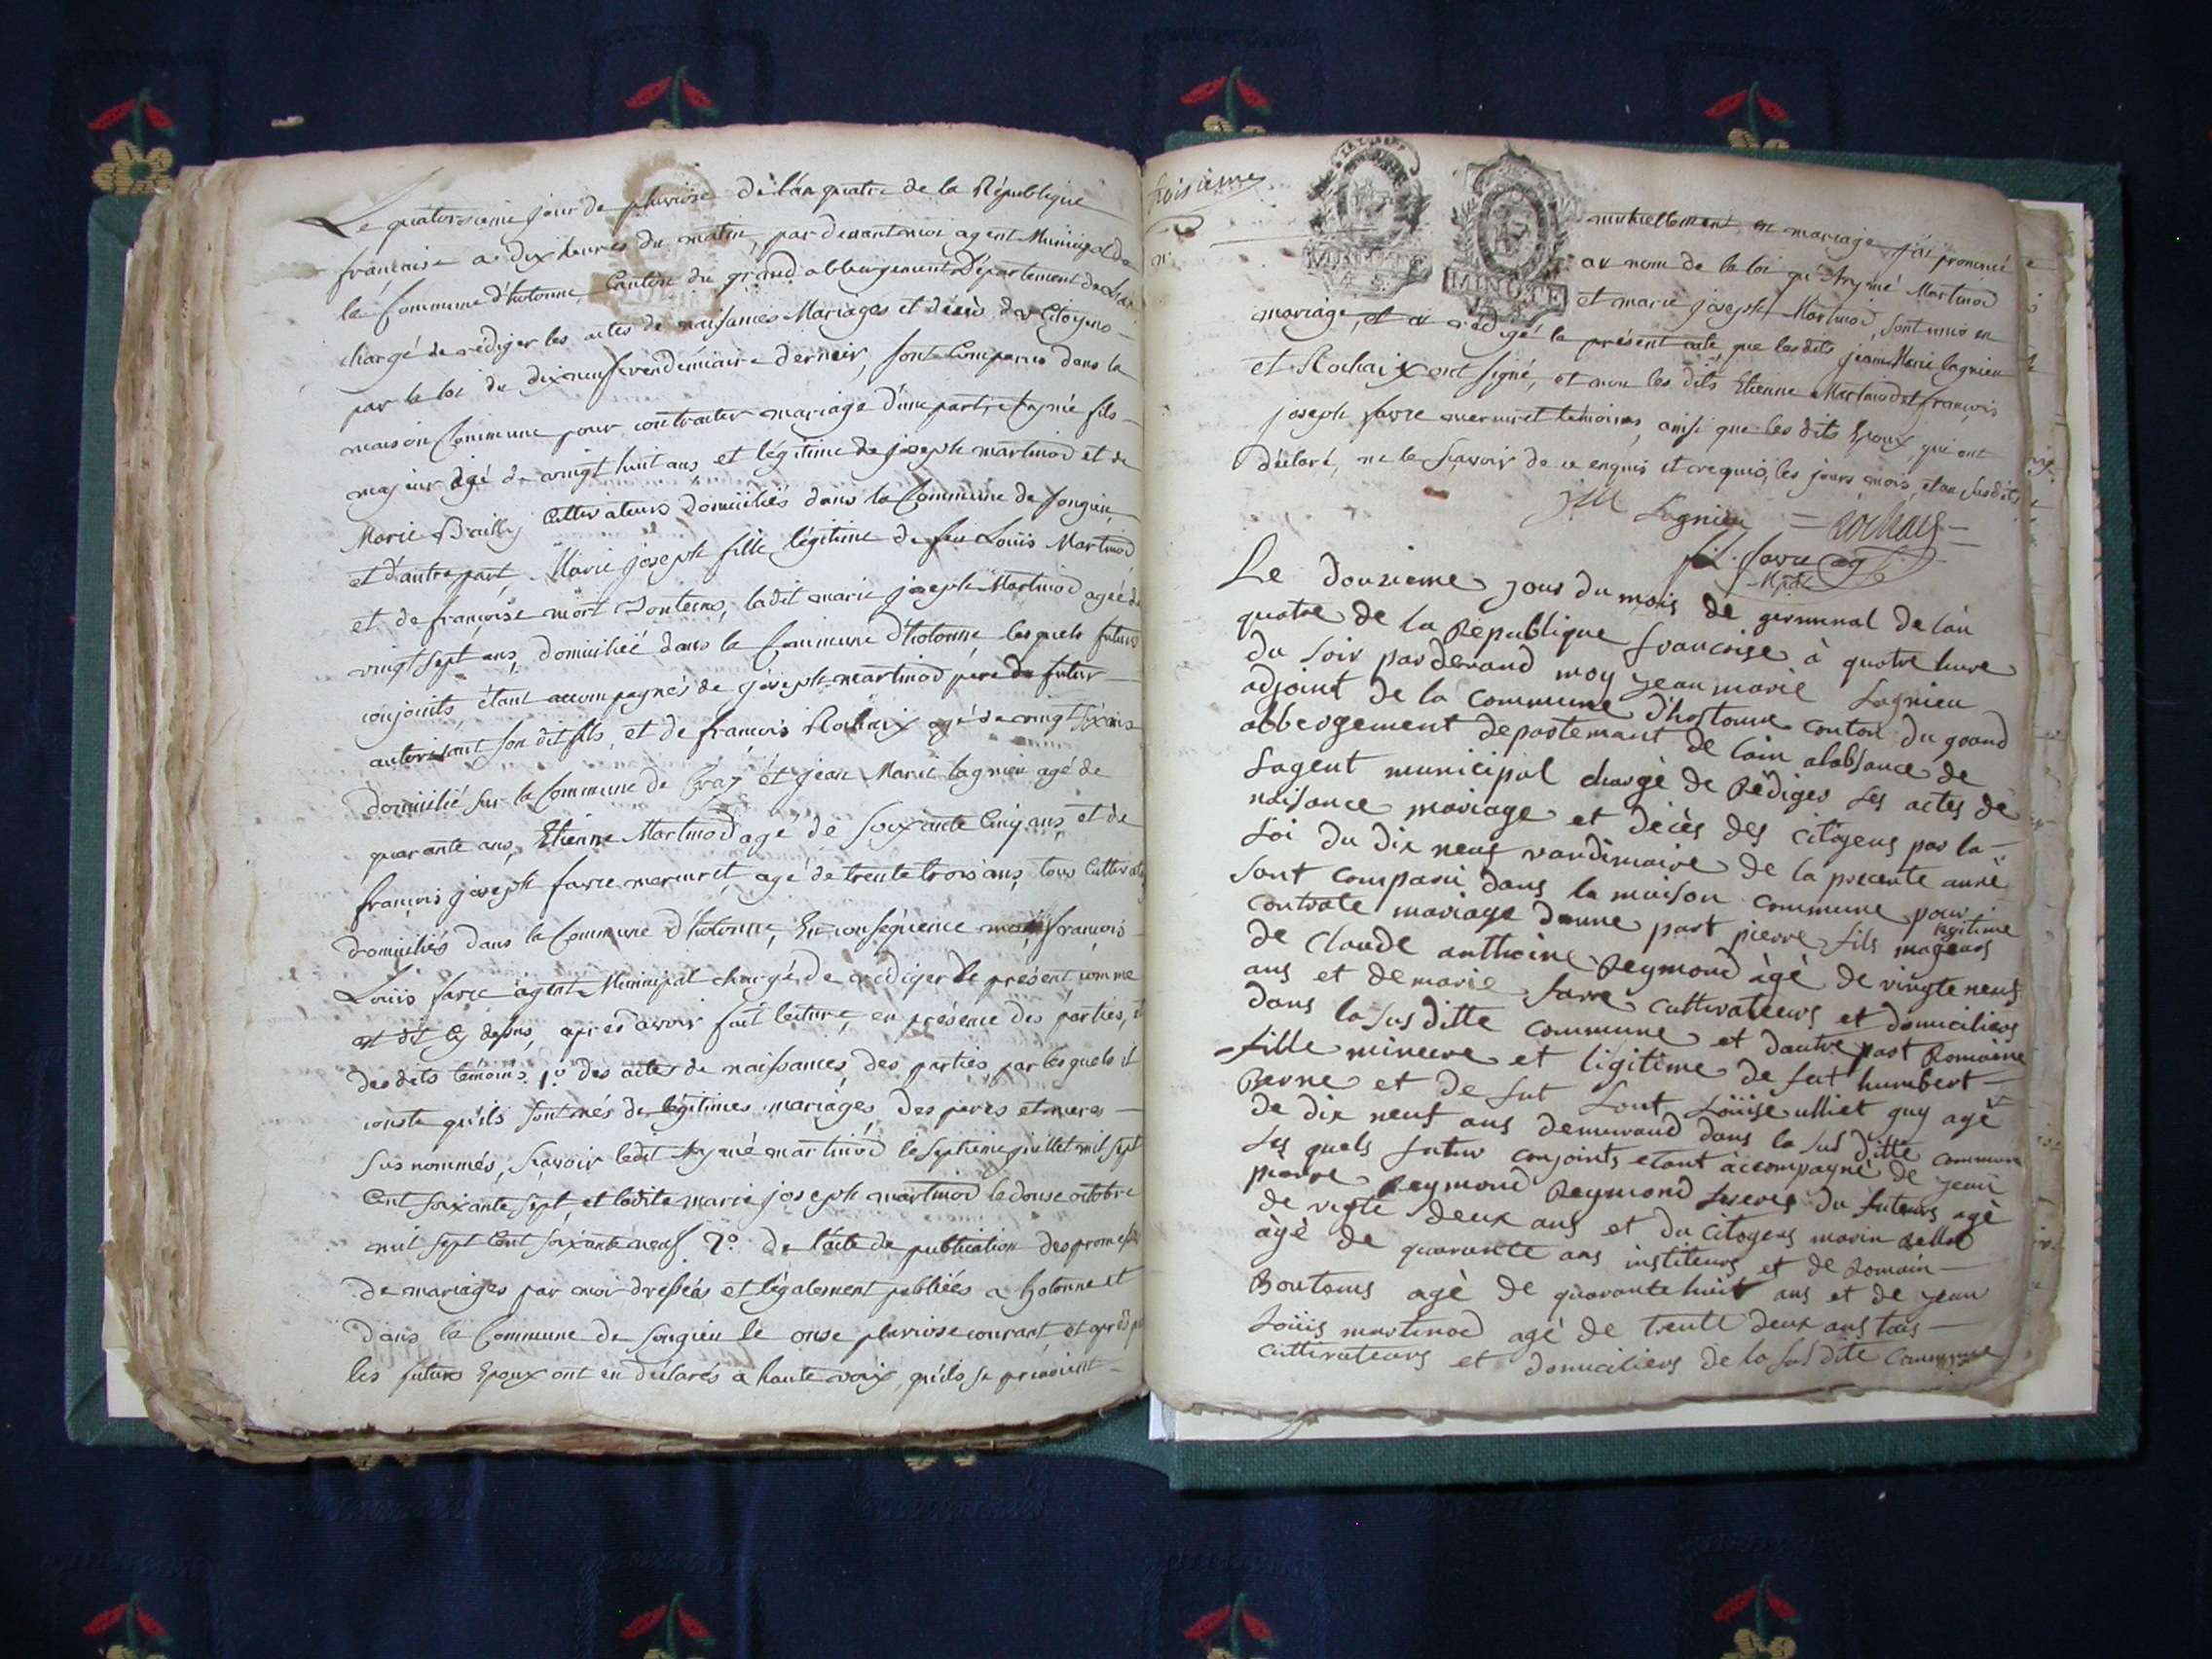 Le quatorzieme jour de pluviose de l'an quatre de la République
francaise a dix heures du matin, par devant moi agent Municipal de
la Commune d'hotonne, Canton du grand abbergement Département de L'ain
chargé de rédiger les actes de naissances Mariages et décès des Citoyens
par la loi du dixneuf vendémiaire dernier, sont Comparus dans la
maison Commune pour contracter mariage d'une part, Aymé fils
majeur agé de vingt huit ans et légitime de joseph martinod et de
Marie Bailly Cultivateurs domiciliés dans la Commune de Songieu
et d'autre part, Marie joseph fille légitime de feu Louis Martinod
et de francoise mort, ladit marie joseph Martinod agée de
vingt sept ans, domiciliée dans la Commune d'hotonne lesquels futurs
conjoints étant accompagnés de joseph martinod père du futur
autorisant son dit fils, et de francois Rochaix agé de vingt six ans
domicilié sur la Commune de et jean Marie lagnieu agé de
quarante ans, Etienne Martinod agé de soixante Cinq ans, et de
francois joseph favre mermet agé de trente trois ans, tous Cultivat
domiciliés dans la Commune d'hotonne, En conséquence moi francois
Louis favre agent Municipal chargé de rediger le présent, comme
est dit cy dessus, après avoir fait lecture en présence des parties, et
desdits témoins 1° des actes de naissances des parties par lesquels il
conste qu'ils sont nés de légitimes mariages des peres et meres
sus nommés, sçavoir ledit Aymé martinod le septieme juillet mil sept
Cent soixante sept, et ladite marie joseph martinod le douse octobre
mil sept Cent soixante neuf 2° de l'acte de publication des promesses
de mariages par moi dressées et légalement publiées a hotonne et
dans la Commune de Songieu le onse pluviose courant et après que
les futurs Epoux ont eu déclarés a haute voix, qu'ils se prenoient
troisieme
MINUTE
MINUTE
mutuellement en mariage j'ai prononcé
au nom de la loi qu'Aymé Martinod
et marie joseph Martinod, sont unis en
mariage, et ai rédigé le présent acte que lesdits jean Marie lagnieu
et Rochaix ont signé, et non les dits Etienne Martinod et francois
joseph favre mermet témoins, ainsi que les dits Epoux, qui ont
déclaré, ne le sçavoir de ce enquis et requis, les jours mois, et an susdits
jM Lagnieu = Rochaix =
f. L. favre ag
Mpal
Le douzieme jour du mois de germinal de lan
quatre de la Republique francoise à quatre heure
du soir par devand moy jean marie Lagnieu
adjoint de la commune d'hostonne conton du grand
abbergement departemant de lain alabsance de
Lagent municipal chargè de Rèdiger les actes de
naisance mariage et dècès des citoyens par la
Loi du dix neuf vandimaire de la precente annè
sont comparu dans la maison commune pour
contrate mariage dunne part pierre fils mageurs
legitime
de claude anthoine Reymond àgè de vingte neuf
ans et de marie favre cultivateurs et domiciliers
dans la sus ditte commune et dautre part Romaine
fille mineure et ligitime de fut humbert
Berne et de fut Louise ulliet guy agè
de dix neuf ans demurand dans la sus ditte commune
Les quels futur conjoints etant àccompagnè de jean
pierre Reymond Reymond freres du futeurs agè
de vigte deux ans et du citoyens marin Bellod
àgè de quarante ans institeurs et de Romain
Boutons agè de quarante huit ans et de jean
Loüis martinod agè de trente deux ans tous
cultivateurs et domiciliers de la sus dite commune